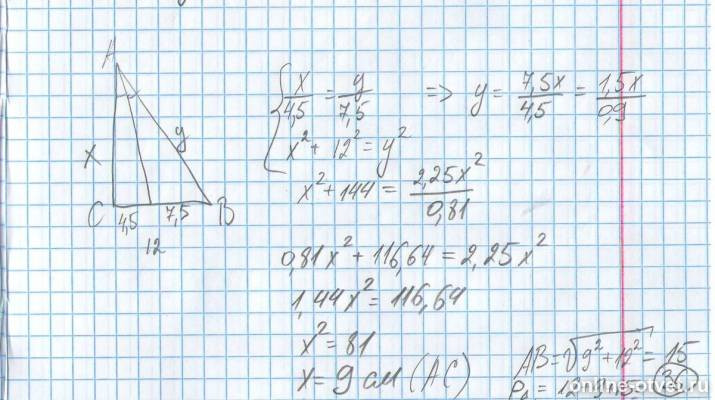 A
x
y
C 4,5 7,5 B
12
x/4,5 = y/7,5 => y = 7,5x/4,5 = 1,5x/0,9
x² + 12² = y²
x² + 144 = 2,25x²/0,81
0,81x² + 116,64 = 2,25x²
1,44x² = 116,64
x² = 81
x = 9 см (AC)
AB = √9² + 12² = 15
36
onlineotvet.ru